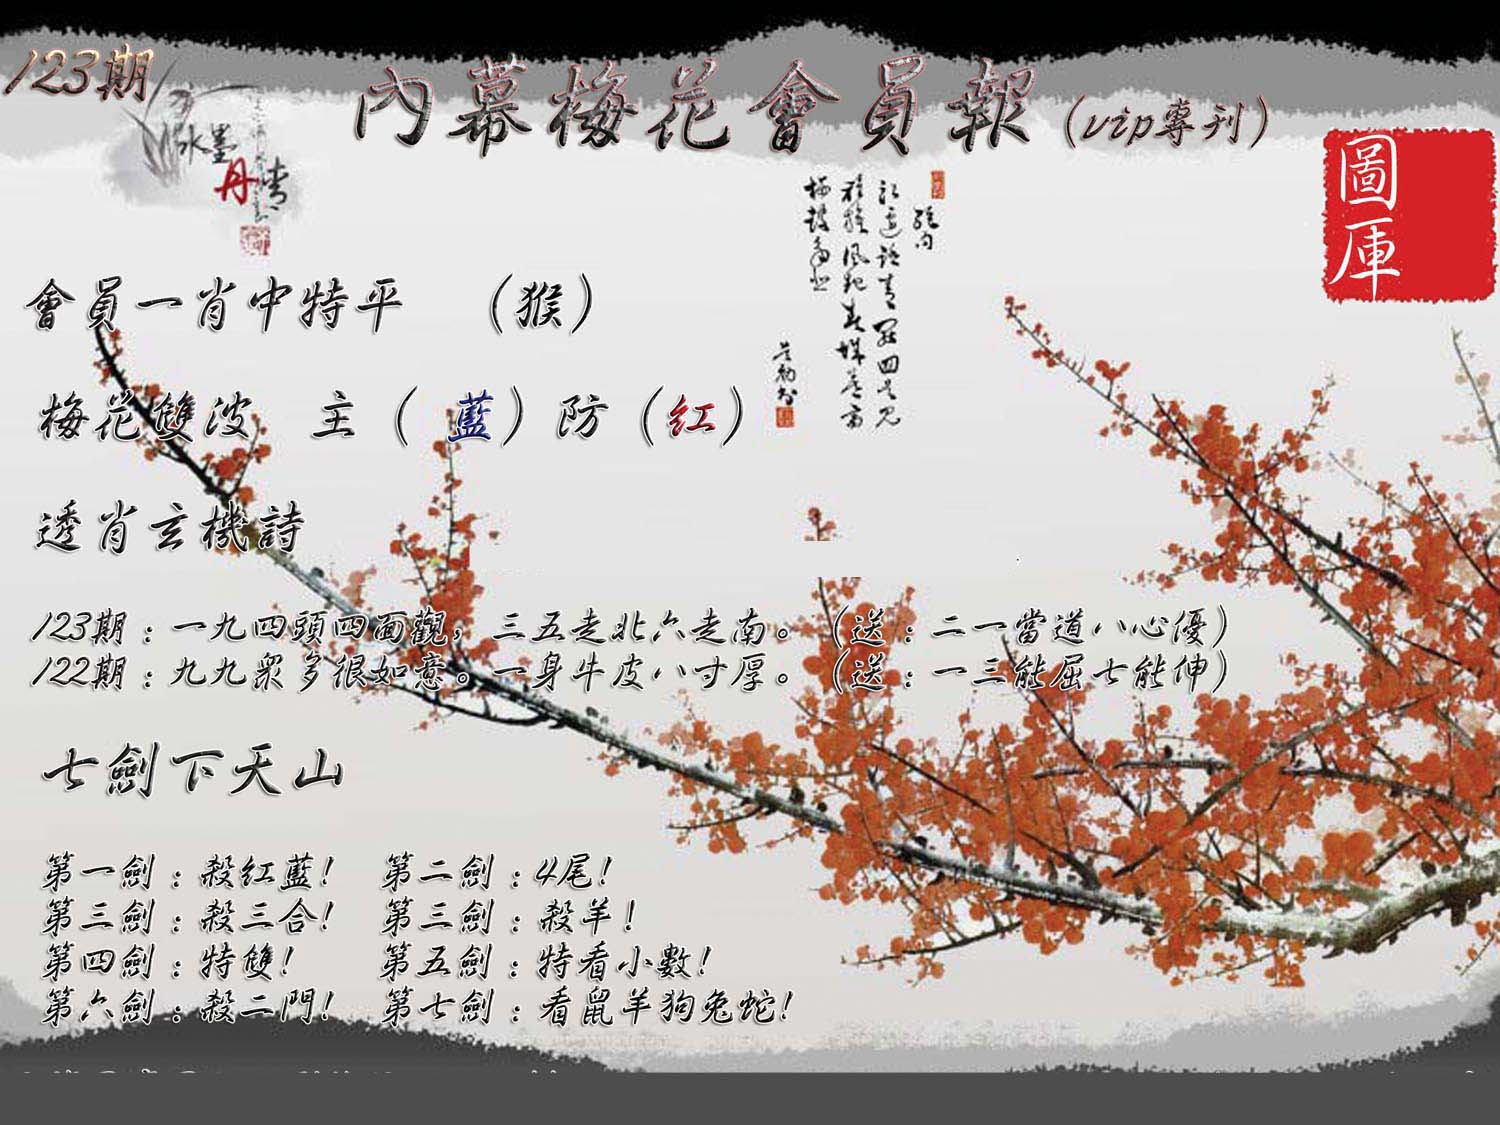 123期
內幕梅花會員報(vip專刊)
水墨
丹青
圖庫
會員一肖中特平 (猴)
梅花雙波 主(藍)防(紅)
透肖玄機詩
123期:一九四頭四面觀,三五走北六走南。(送:二一當道八心優)
122期:九九衆多很如意。一身牛皮八寸厚。(送:一三能屈七能伸)
七劍下天山
第一劍:殺紅藍! 第二劍:4尾!
第三劍:殺三合! 第三劍:殺羊!
第四劍:特雙! 第五劍:特看小數!
第六劍:殺二門! 第七劍:看鼠羊狗兔蛇!